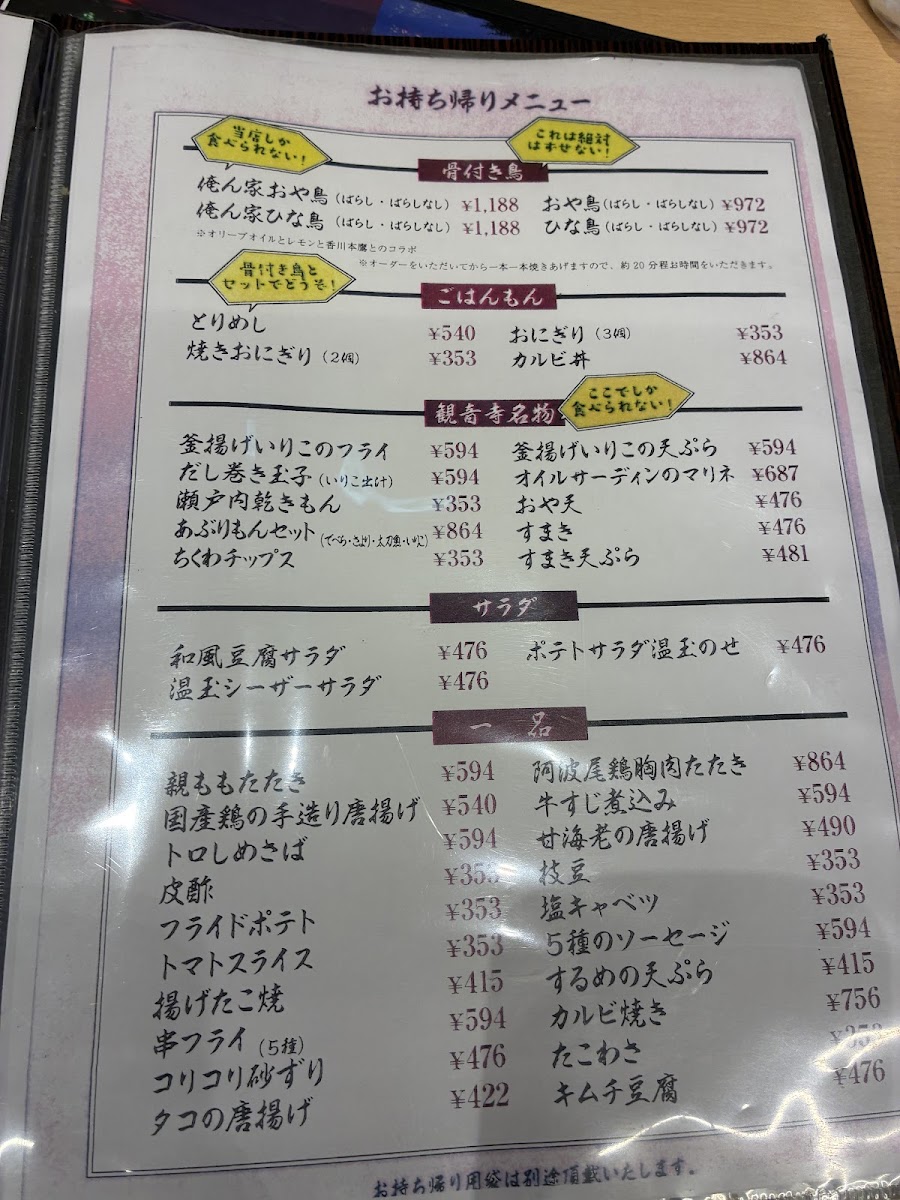 お持ち帰りメニュー
当店しか
食べられない！
これは絶対
はずせない！
骨付き鳥
俺ん家おや鳥（ばらし・ばらしなし） ¥1,188 おや鳥（ばらし・ばらしなし） ¥972
俺ん家ひな鳥（ばらし・ばらしなし） ¥1,188 ひな鳥（ばらし・ばらしなし） ¥972
※オリーブオイルとレモンと香川本鷹とのコラボ
※オーダーをいただいてから一本一本焼きあげますので、約20分程お時間をいただきます。
骨付き鳥と
セットでどうぞ！
ごはんもん
とりめし ¥540 おにぎり（3個） ¥353
焼きおにぎり（2個） ¥353 カルビ丼 ¥864
観音寺名物
ここでしか
食べられない！
釜揚げいりこのフライ ¥594 釜揚げいりこの天ぷら ¥594
だし巻き玉子（いりこ出汁） ¥594 オイルサーディンのマリネ ¥687
瀬戸内乾きもん ¥353 おや天 ¥476
あぶりもんセット（でべら・さより・太刀魚・いりこ） ¥864 すまき ¥476
ちくわチップス ¥353 すまき天ぷら ¥481
サラダ
和風豆腐サラダ ¥476 ポテトサラダ温玉のせ ¥476
温玉シーザーサラダ ¥476
一品
親ももたたき ¥594 阿波尾鶏胸肉たたき ¥864
国産鶏の手造り唐揚げ ¥540 牛すじ煮込み ¥594
トロしめさば ¥594 甘海老の唐揚げ ¥490
皮酢 ¥353 枝豆 ¥353
フライドポテト ¥353 塩キャベツ ¥353
トマトスライス ¥353 5種のソーセージ ¥594
揚げたこ焼 ¥415 するめの天ぷら ¥415
串フライ（5種） ¥594 カルビ焼き ¥756
コリコリ砂ずり ¥476 たこわさ ¥353
タコの唐揚げ ¥422 キムチ豆腐 ¥476
お持ち帰り用袋は別途頂戴いたします。